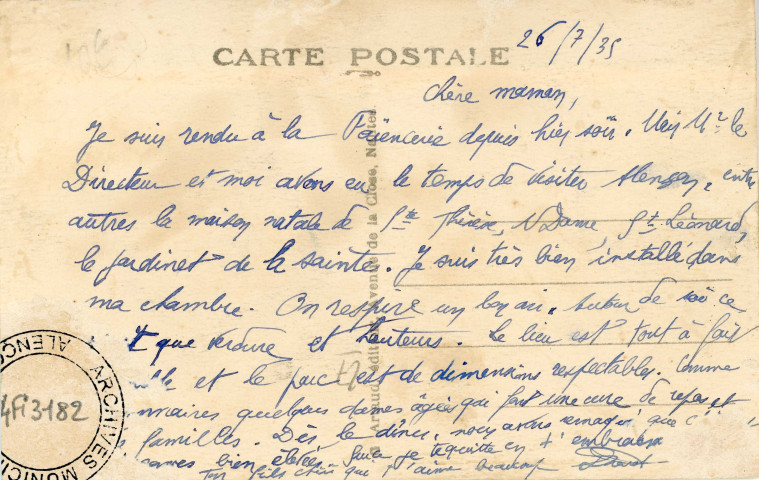 CARTE POSTALE
26/7/35
Chère maman,
Je suis rendu à la Faïencerie depuis hier soir. Mais Mr le
Directeur et moi avons eu le temps de visiter Alençon, entre
autres la maison natale de Ste Thérèse, N Dame, St Léonard,
le jardinet de la sainte. Je suis très bien installé dans
ma chambre. On respire un bon air. Autour de soi ce
que verdure et hauteurs. Le lieu est tout à fait
et le parc est de dimensions respectables. Comme
quelques dames âgées qui font une cure de repos et
familles. Dès le dîner, nous avons remarqué que c'
bien élevées. je te quitte en t'embrassant
Ton fils chéri qui t'aime beaucoup
Artaud, édit. avenue de la Close, Nantes
ARCHIVES MUNICI
ALENÇO
4Fi3182